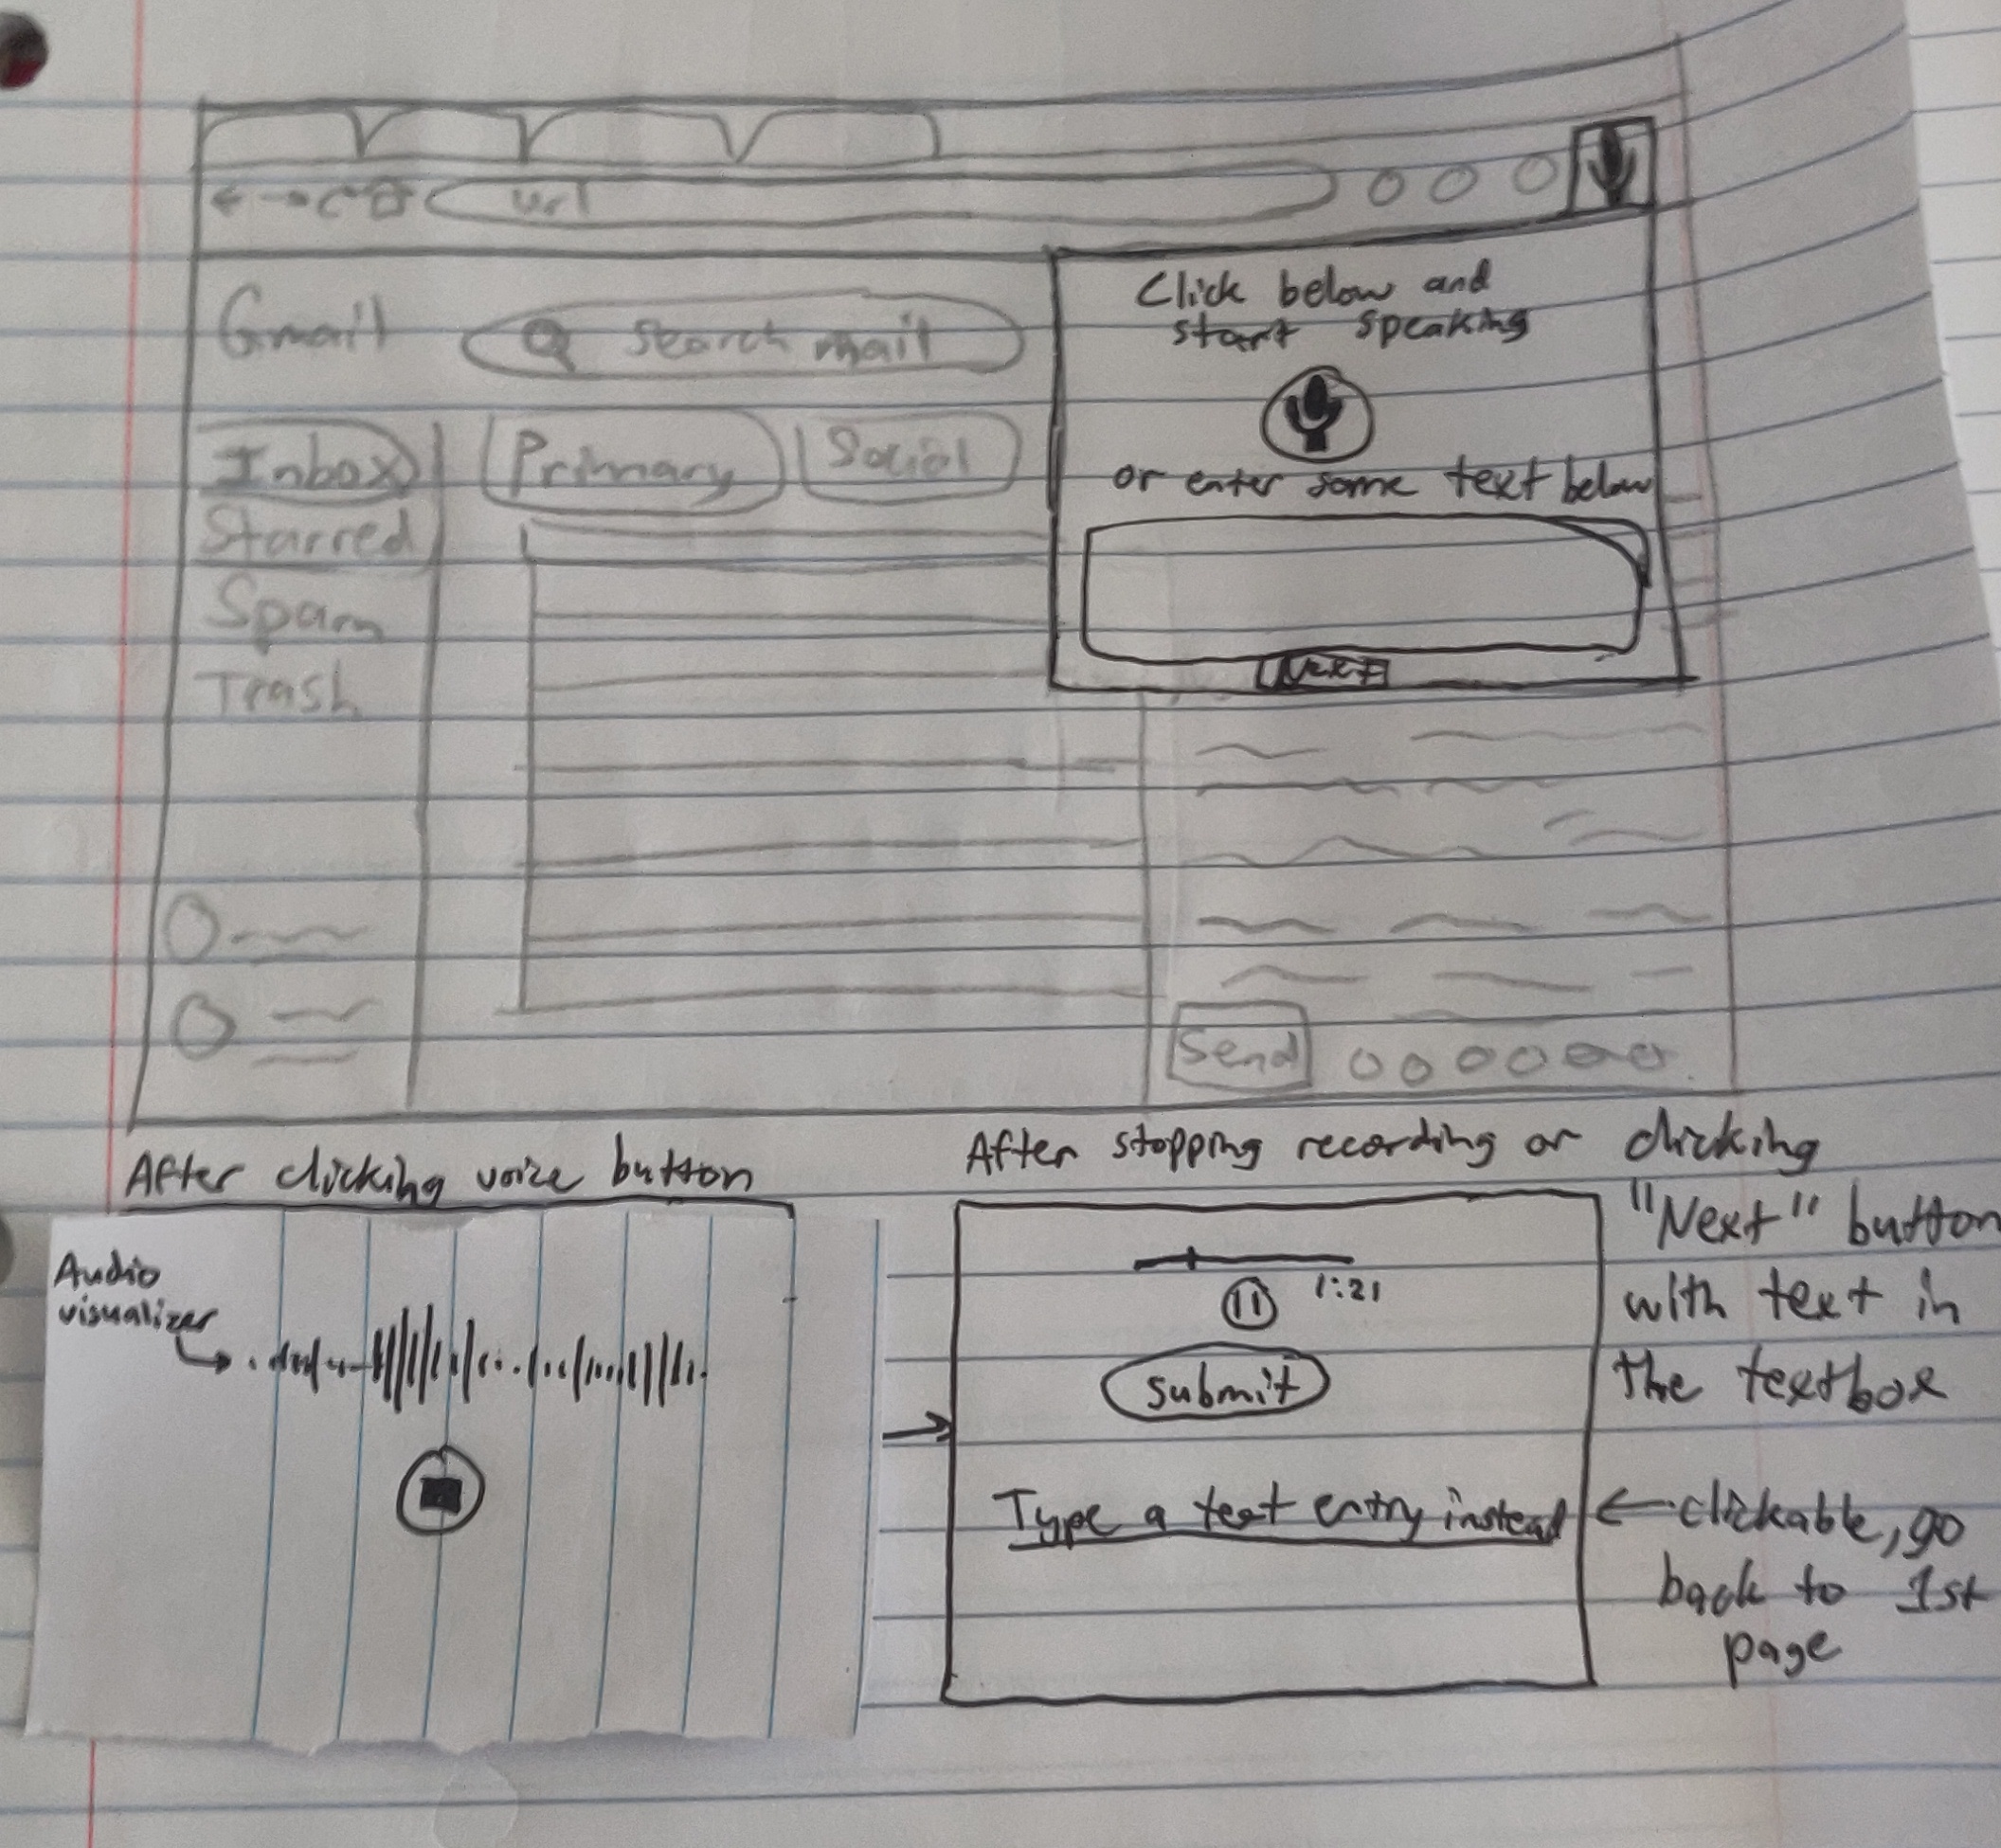 url
Gmail
Search mail
Inbox
Starred
Spam
Trash
Primary
Social
Click below and
start speaking
or enter some text below
Next
Send
After clicking voice button
Audio
visualizer
After stopping recording or clicking
"Next" button
with text in
the textbox
1:21
submit
Type a text entry instead
clickable, go
back to 1st
page